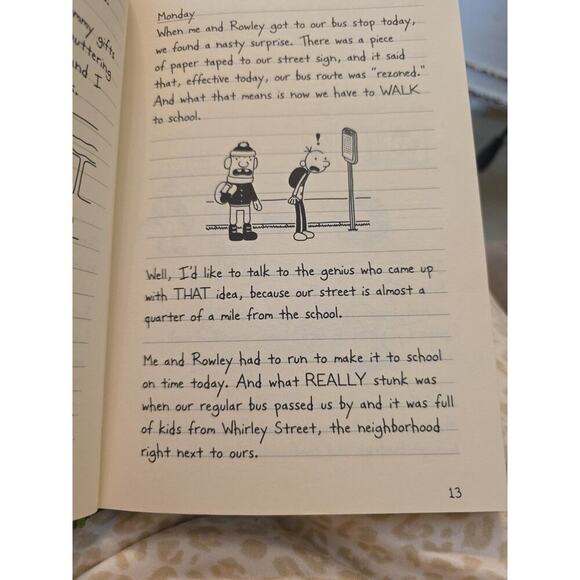 mmy gifts
uttering
nd I
Monday
When me and Rowley got to our bus stop today,
we found a nasty surprise. There was a piece
of paper taped to our street sign, and it said
that, effective today, our bus route was "rezoned."
And what that means is now we have to WALK
to school.
!
Well, I'd like to talk to the genius who came up
with THAT idea, because our street is almost a
quarter of a mile from the school.
Me and Rowley had to run to make it to school
on time today. And what REALLY stunk was
when our regular bus passed us by and it was full
of kids from Whirley Street, the neighborhood
right next to ours.
13